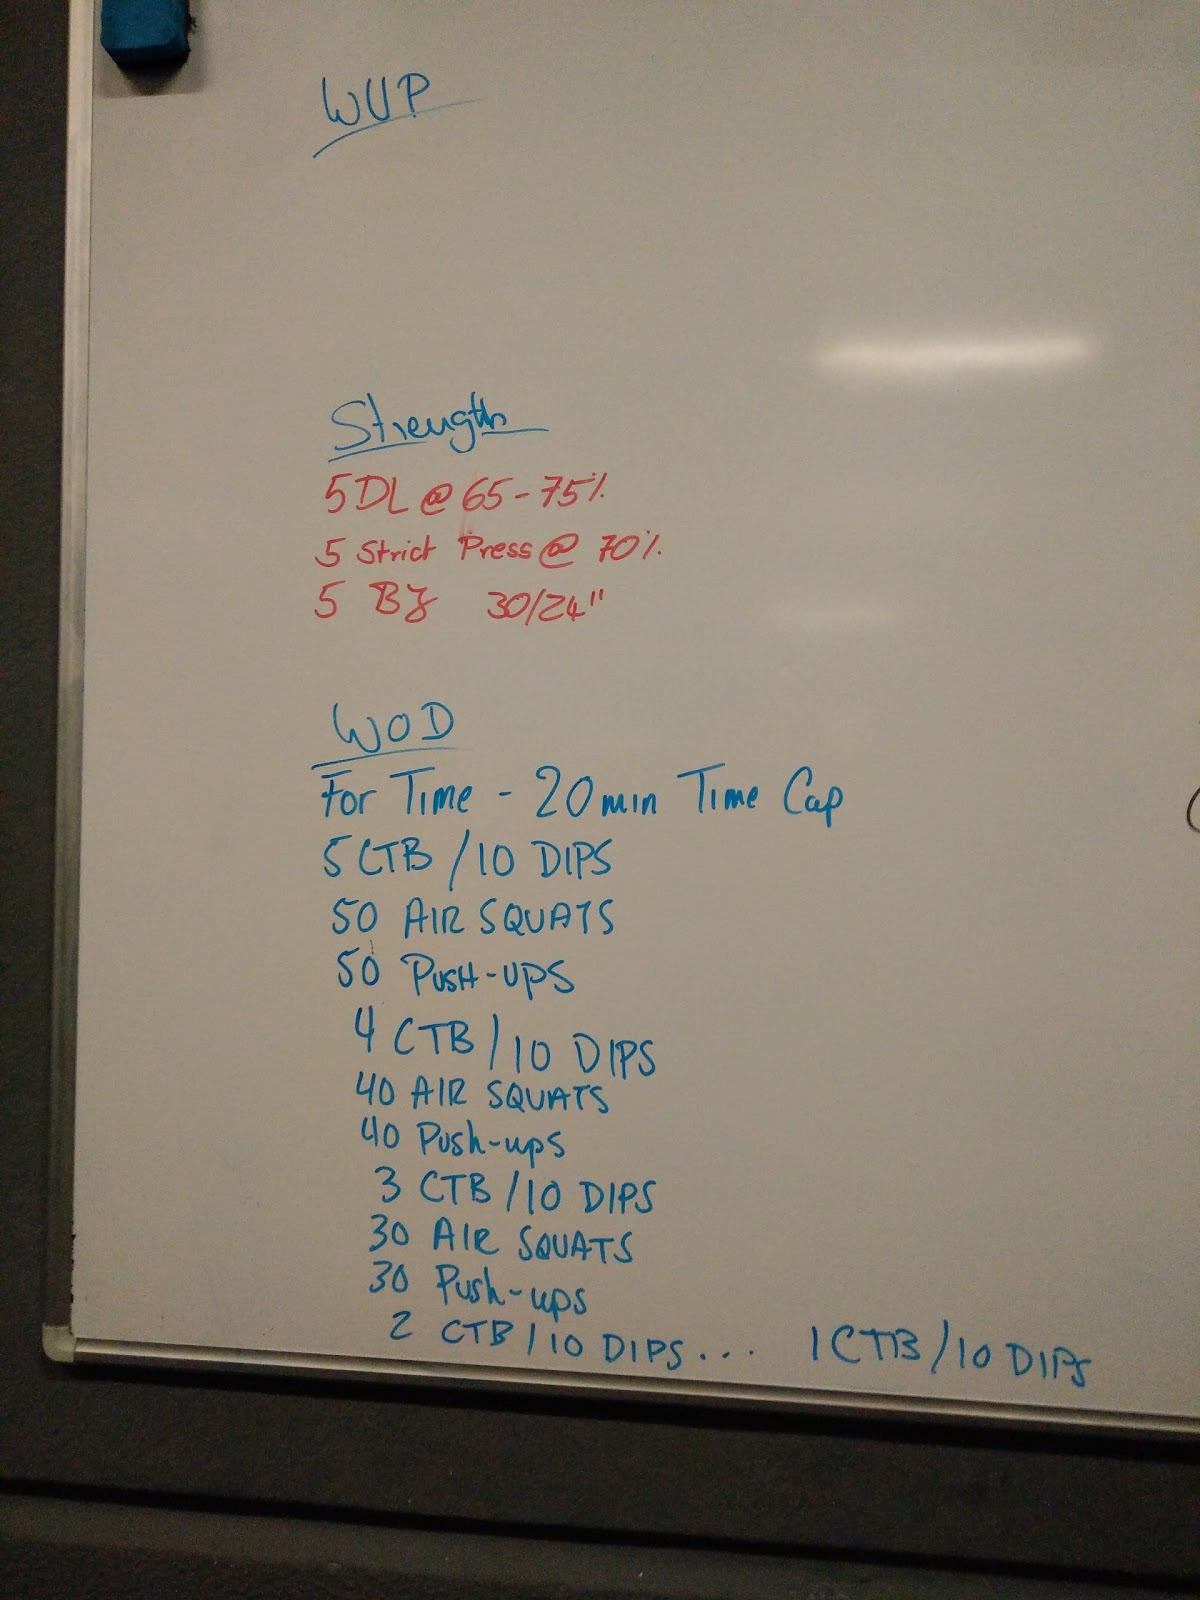 WUP
Strength
5 DL @ 65-75%
5 Strict Press @ 70%
5 BJ 30/24"
WOD
For Time - 20min Time Cap
5 CTB / 10 DIPS
50 AIR SQUATS
50 Push-ups
4 CTB / 10 DIPS
40 AIR SQUATS
40 Push-ups
3 CTB / 10 DIPS
30 AIR SQUATS
30 Push-ups
2 CTB / 10 DIPS... 1 CTB / 10 DIPS